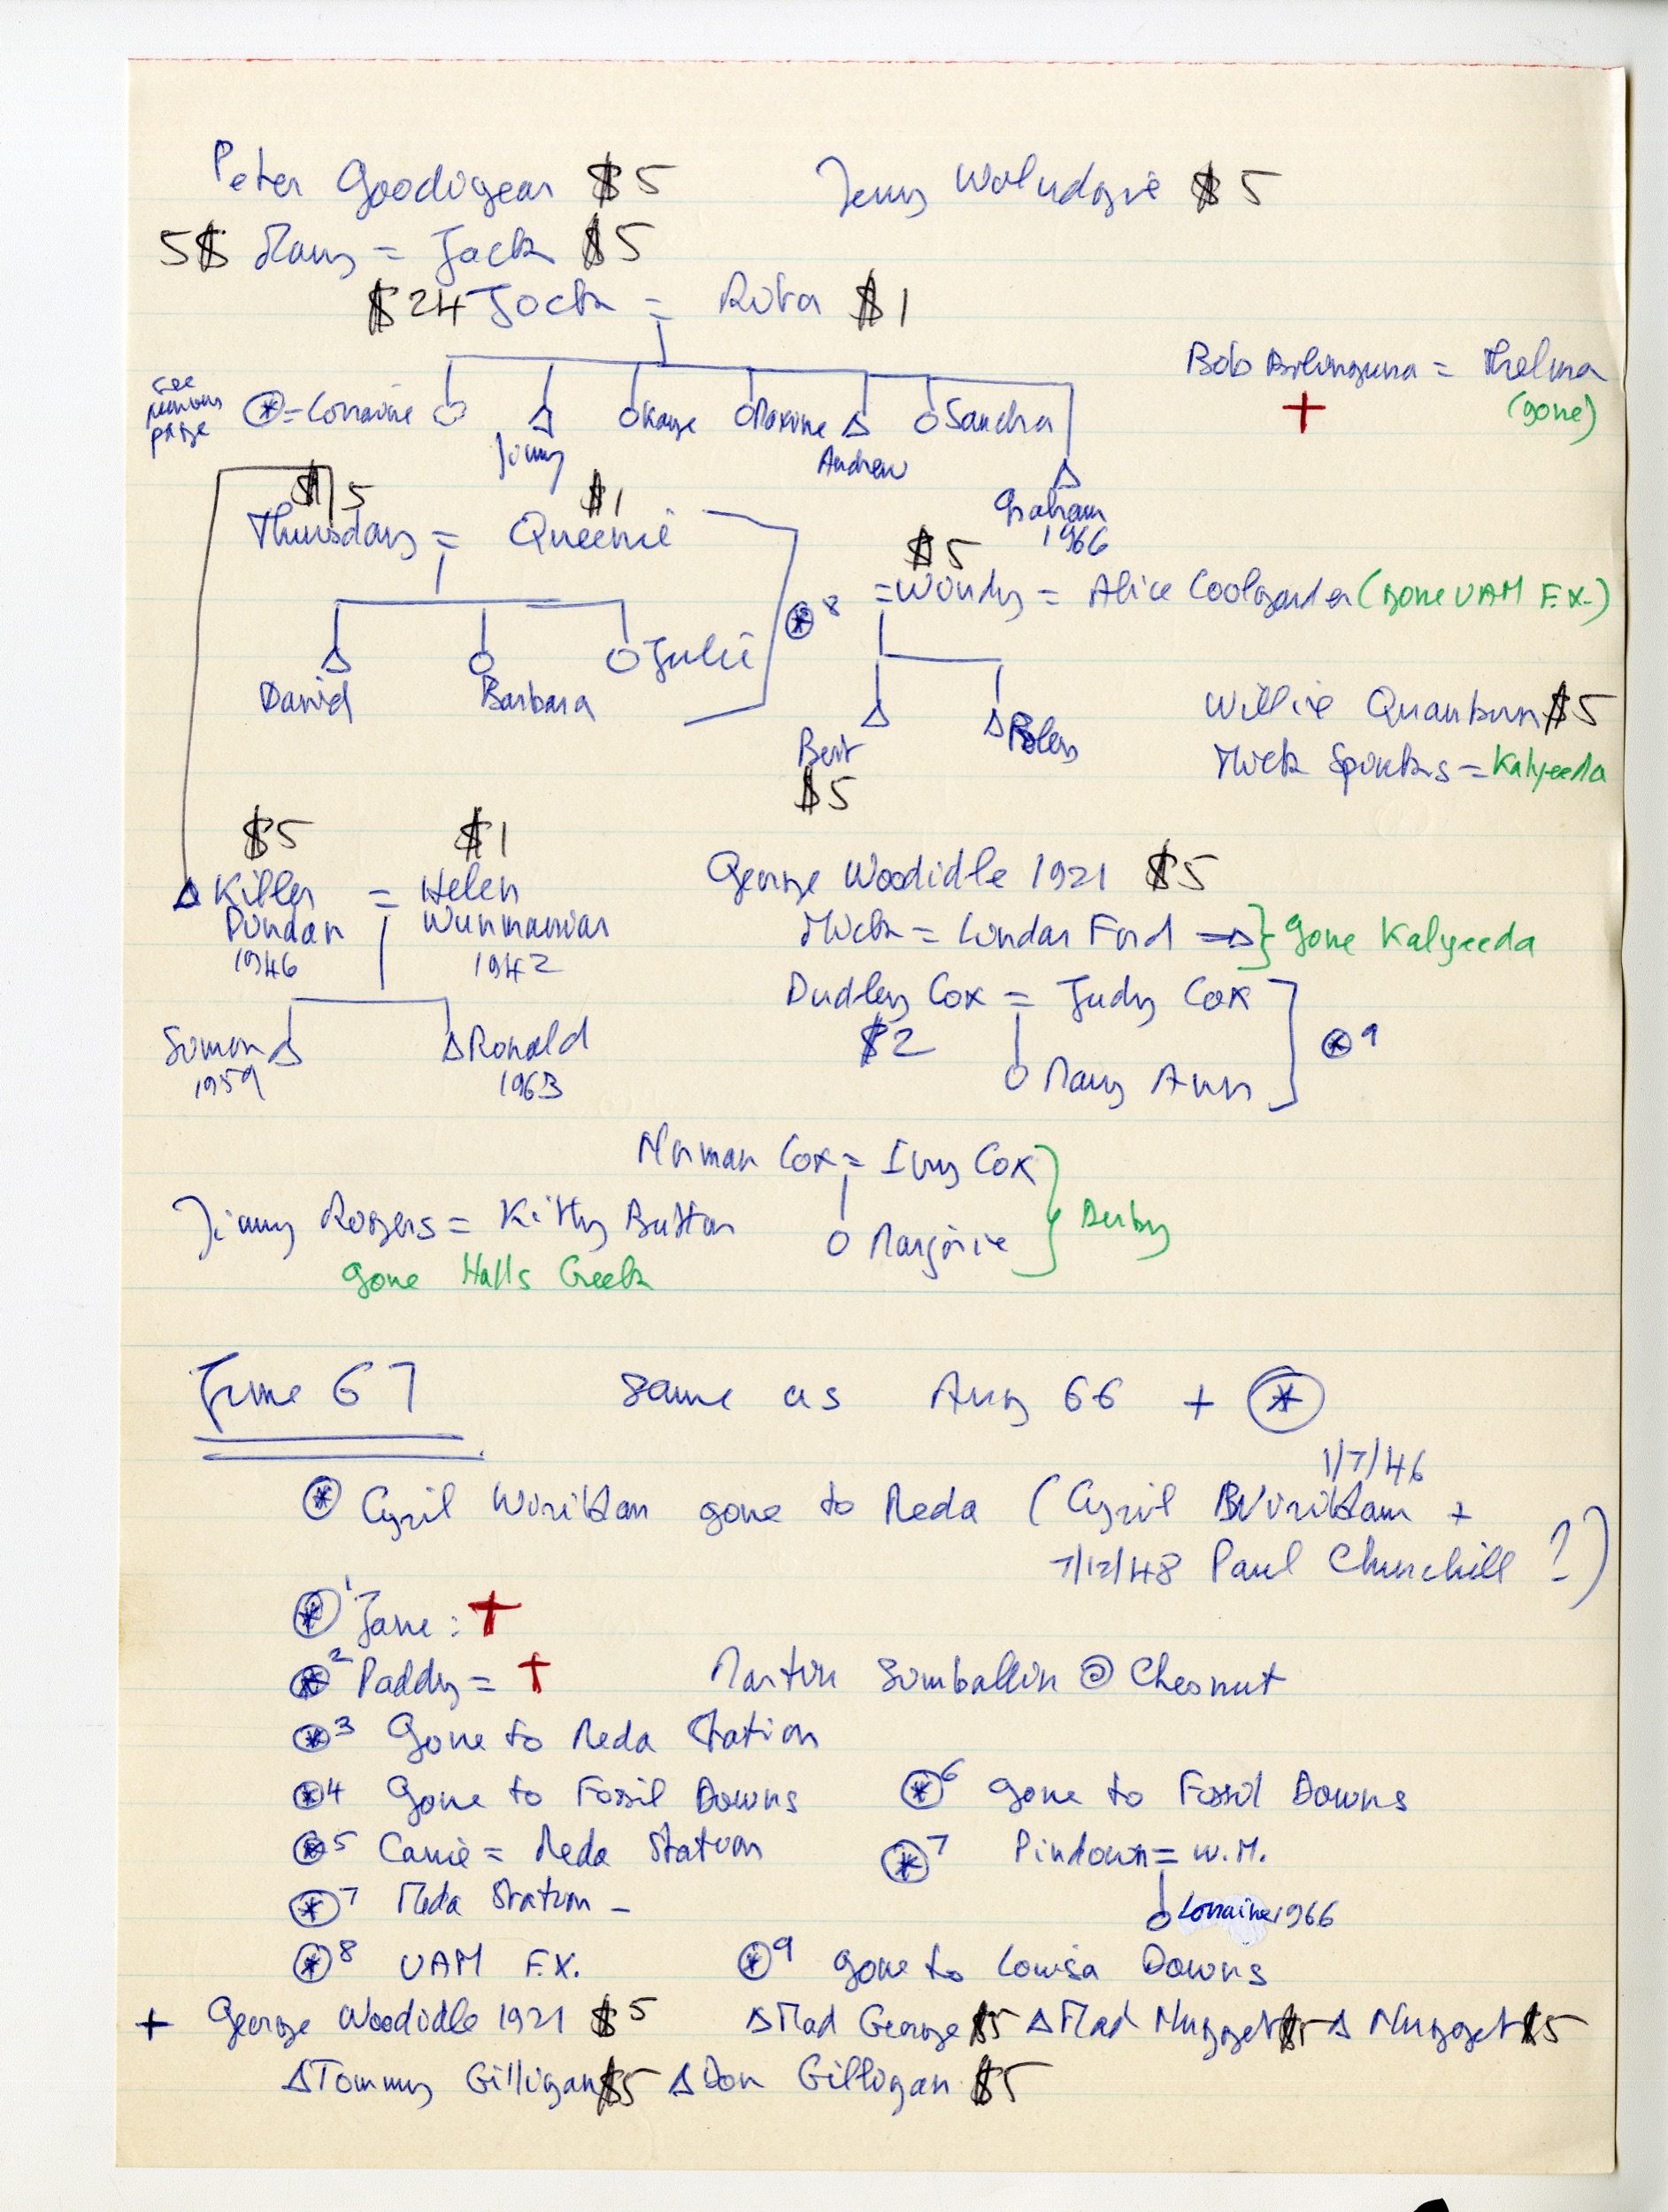 Peter Goodogear $5 Jenny $5
5$ Mary = Jack $5
$24 Jock = Rita $1
Bob = Thelma
+ (gone)
see previous page
⊛ = Lorraine
Jimmy Kaye Maxine Andrew Sandra
Graham
1966
$5 $1
Thursday = Queenie
$5
= Windy = Alice Coolgarda (gone UAM F.X.)
⊛8
David Barbara Julie
Bert
$5
Willie $5
Mick Spinks = Kalyeeda
$5 $1
Killer = Helen
Dundan
1946 1942
George Woodidle 1921 $5
Mick = Lindar Ford } gone Kalyeeda
Dudley Cox = Judy Cox
$2
⊛9
Mary Ann
Simon
1959
Ronald
1963
Norman Cox = Ivy Cox
Marjorie
} Derby
Jimmy Rogers = Kitty Button
gone Halls Creek
June 67 same as Aug 66 + ⊛
1/7/46
⊛ Cyril Wiriktam gone to Meda (Cyril Wiriktam +
7/12/48 Paul Churchill ?)
⊛1 Jane: +
⊛2 Paddy = + Martin Simballin @ Chesnut
⊛3 Gone to Meda Station
⊛4 Gone to Fossil Downs ⊛6 gone to Fossil Downs
⊛5 Carrie = Meda Station ⊛7 Pindown = W.M.
⊛7 Meda Station – Lorraine 1966
⊛8 UAM F.X. ⊛9 gone to Louisa Downs
+ George Woodidle 1921 $5 Δ Mad George $5 Δ Mad Nugget $5 Δ Nugget $5
Δ Tommy Gilligan $5 Δ Don Gilligan $5